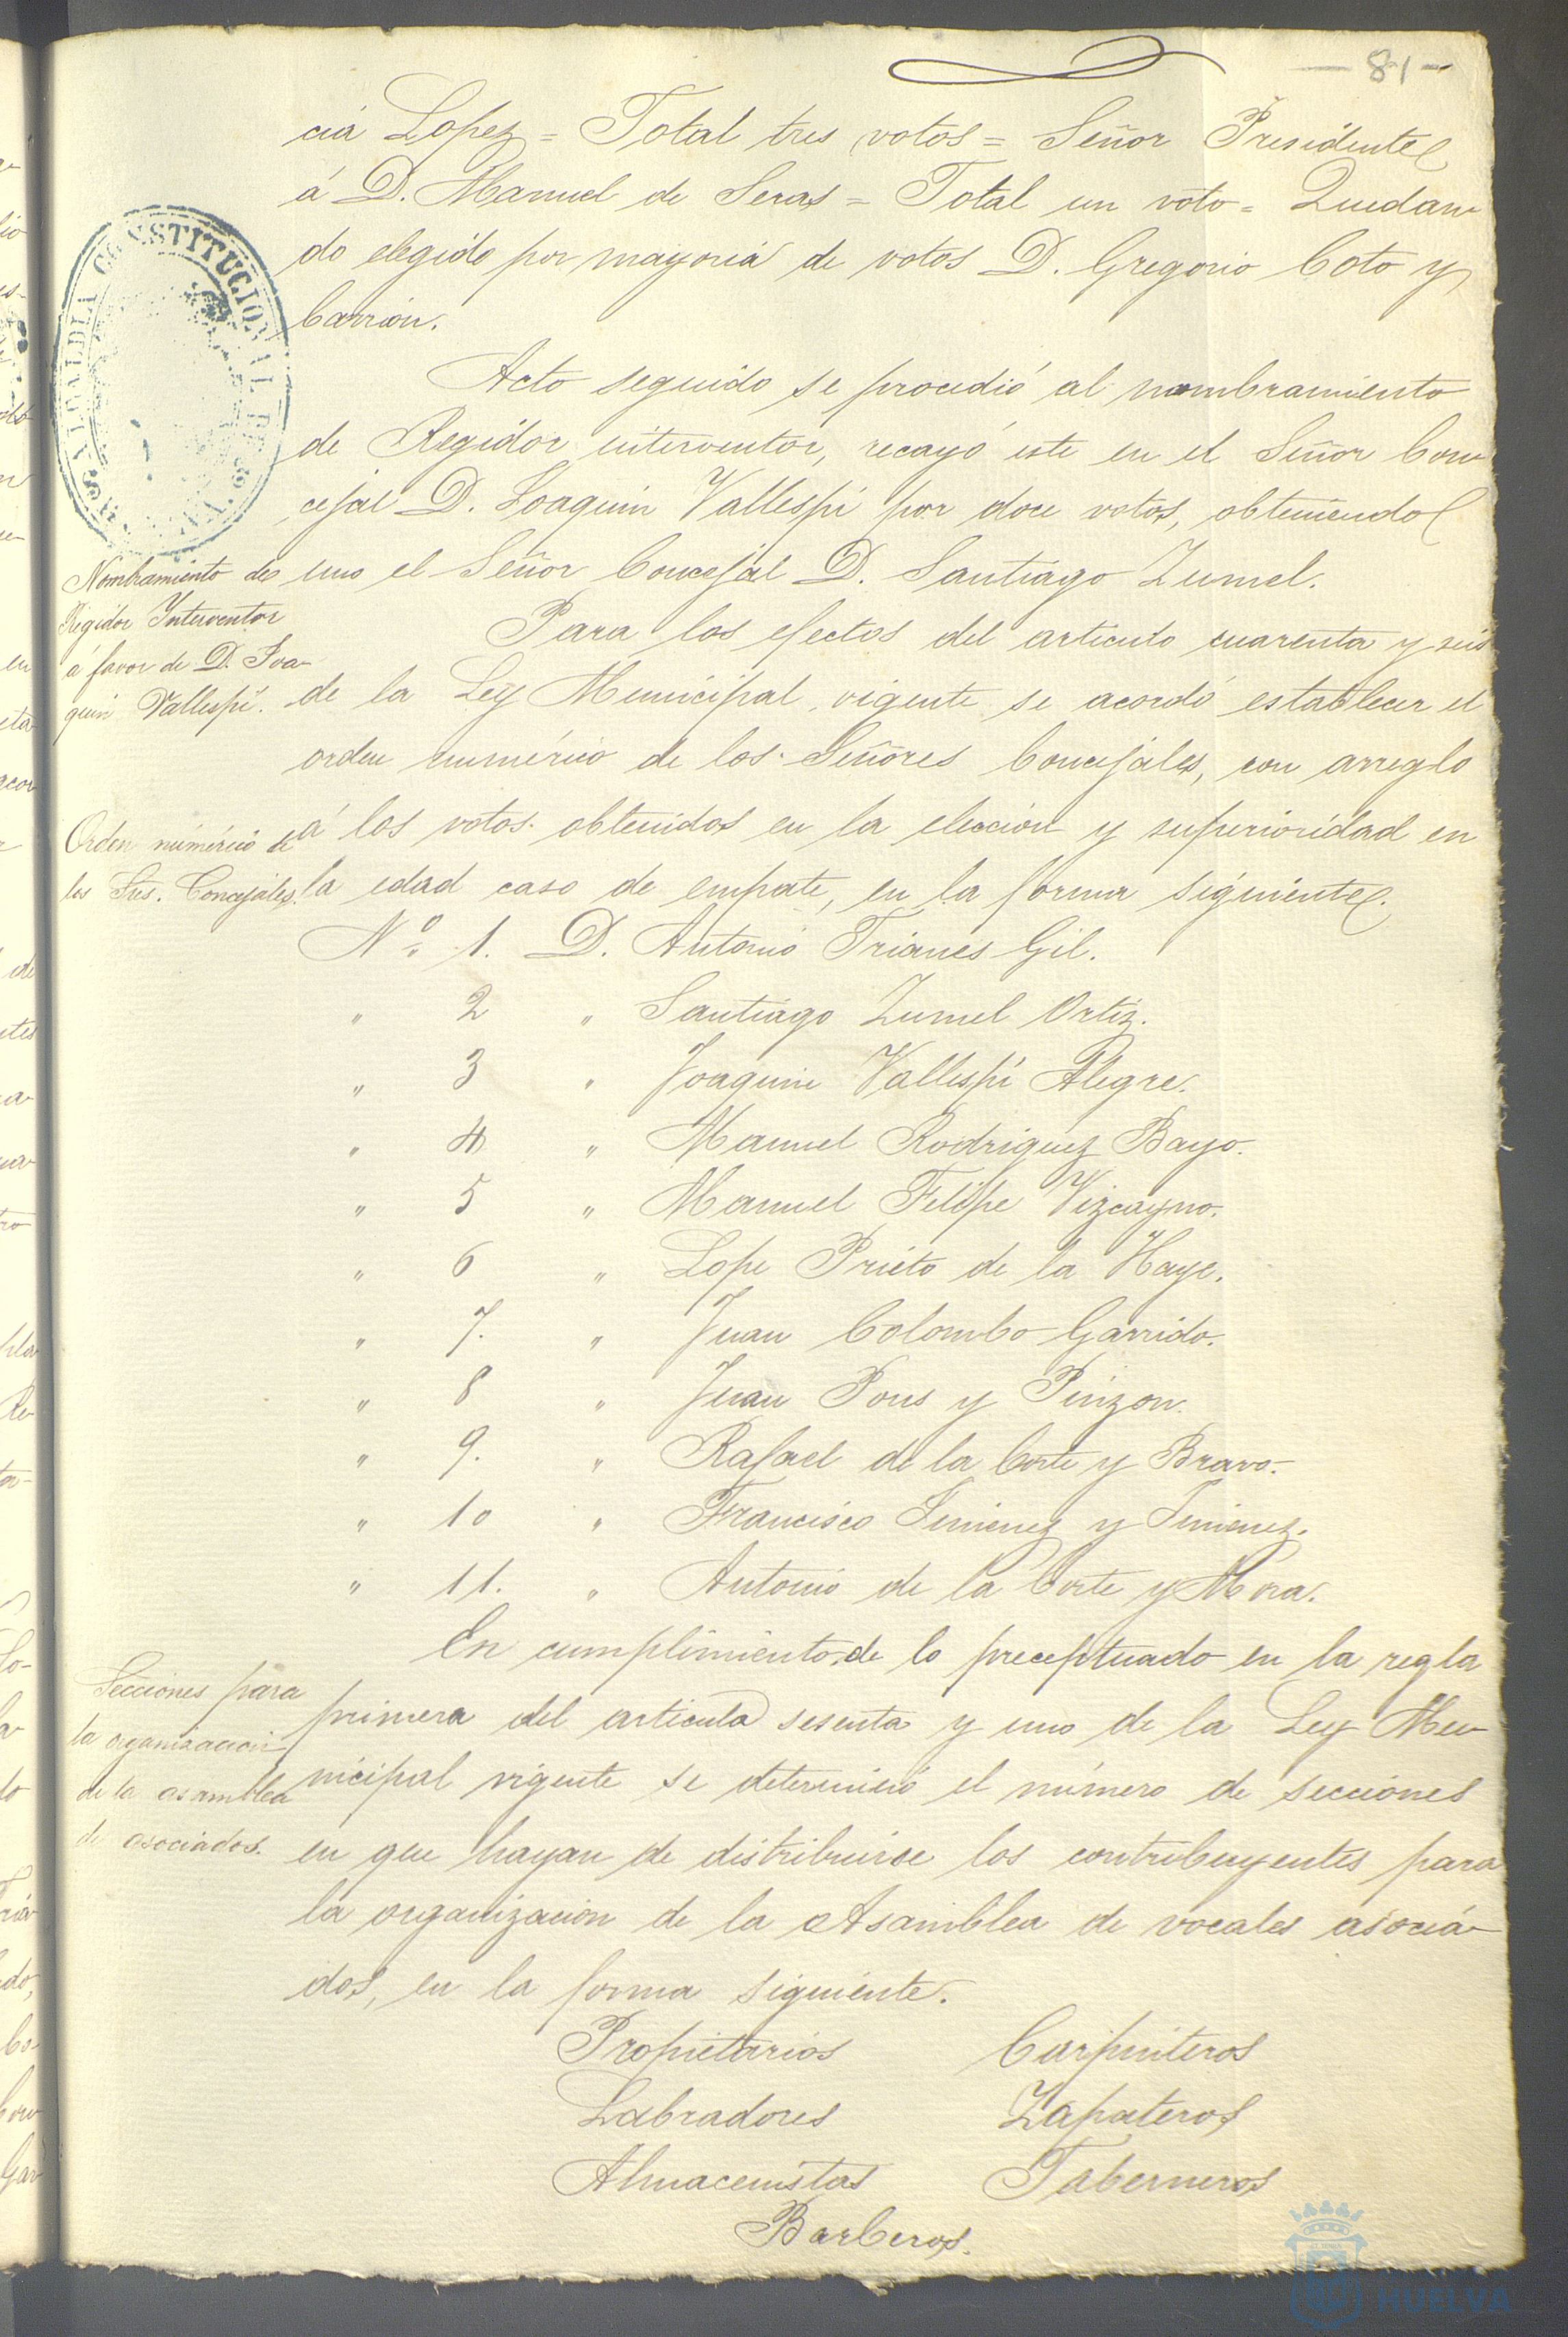 — 81 —
cia Lopez = Total tres votos = Señor Presidente
á D. Manuel de Seras = Total un voto = Quedan-
do elegido por mayoria de votos D. Gregorio Coto y
Carrion.
Acto seguido se procedió al nombramiento
de Regidor interventor, recayó este en el Señor Con-
cejal D. Joaquin Vallespi por doce votos, obteniendo
uno el Señor Concejal D. Santiago Zumel.
ALCALDIA CONSTITUCIONAL DE
Nombramiento de
Regidor Interventor
á favor de D. Joa-
quin Vallespi.
Para los efectos del articulo cuarenta y seis
de la Ley Municipal vigente se acordó establecer el
orden numérico de los Señores Concejales, con arreglo
á los votos obtenidos en la elección y superioridad en
la edad caso de empate, en la forma siguiente.
Orden númerico de
los Sres. Concejales.
Nº 1. D. Antonio Trianes Gil.
" 2 " Santiago Zumel Ortiz.
" 3 " Joaquin Vallespi Alegre.
" 4 " Manuel Rodriguez Bayo.
" 5 " Manuel Felipe Vizcayno.
" 6 " Lope Prieto de la Haye.
" 7. " Juan Colombo Garrido.
" 8 " Juan Pons y Pinzon.
" 9. " Rafael de la Corte y Bravo.
" 10 " Francisco Jimenez y Jimenez.
" 11. " Antonio de la Corte y Mora.
En cumplimiento de lo preceptuado en la regla
primera del articulo sesenta y uno de la Ley Mu-
nicipal vigente se determinó el número de secciones
en que hayan de distribuirse los contribuyentes para
la organizacion de la Asamblea de vocales asocia-
dos, en la forma siguiente.
Secciones para
la organizacion
de la asamblea
de asociados.
Propietarios Carpinteros
Labradores Zapateros
Almacenistas Taberneros
Barberos.
HUELVA